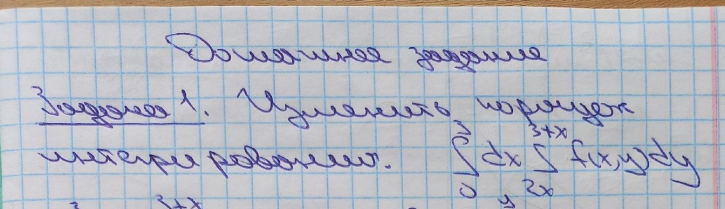 Домашнее задание
Задача 1. Изменить порядок
интегрирования. ∫₀³ dx ∫₂ₓ³⁺ˣ f(x,y)dy
3 3+x y